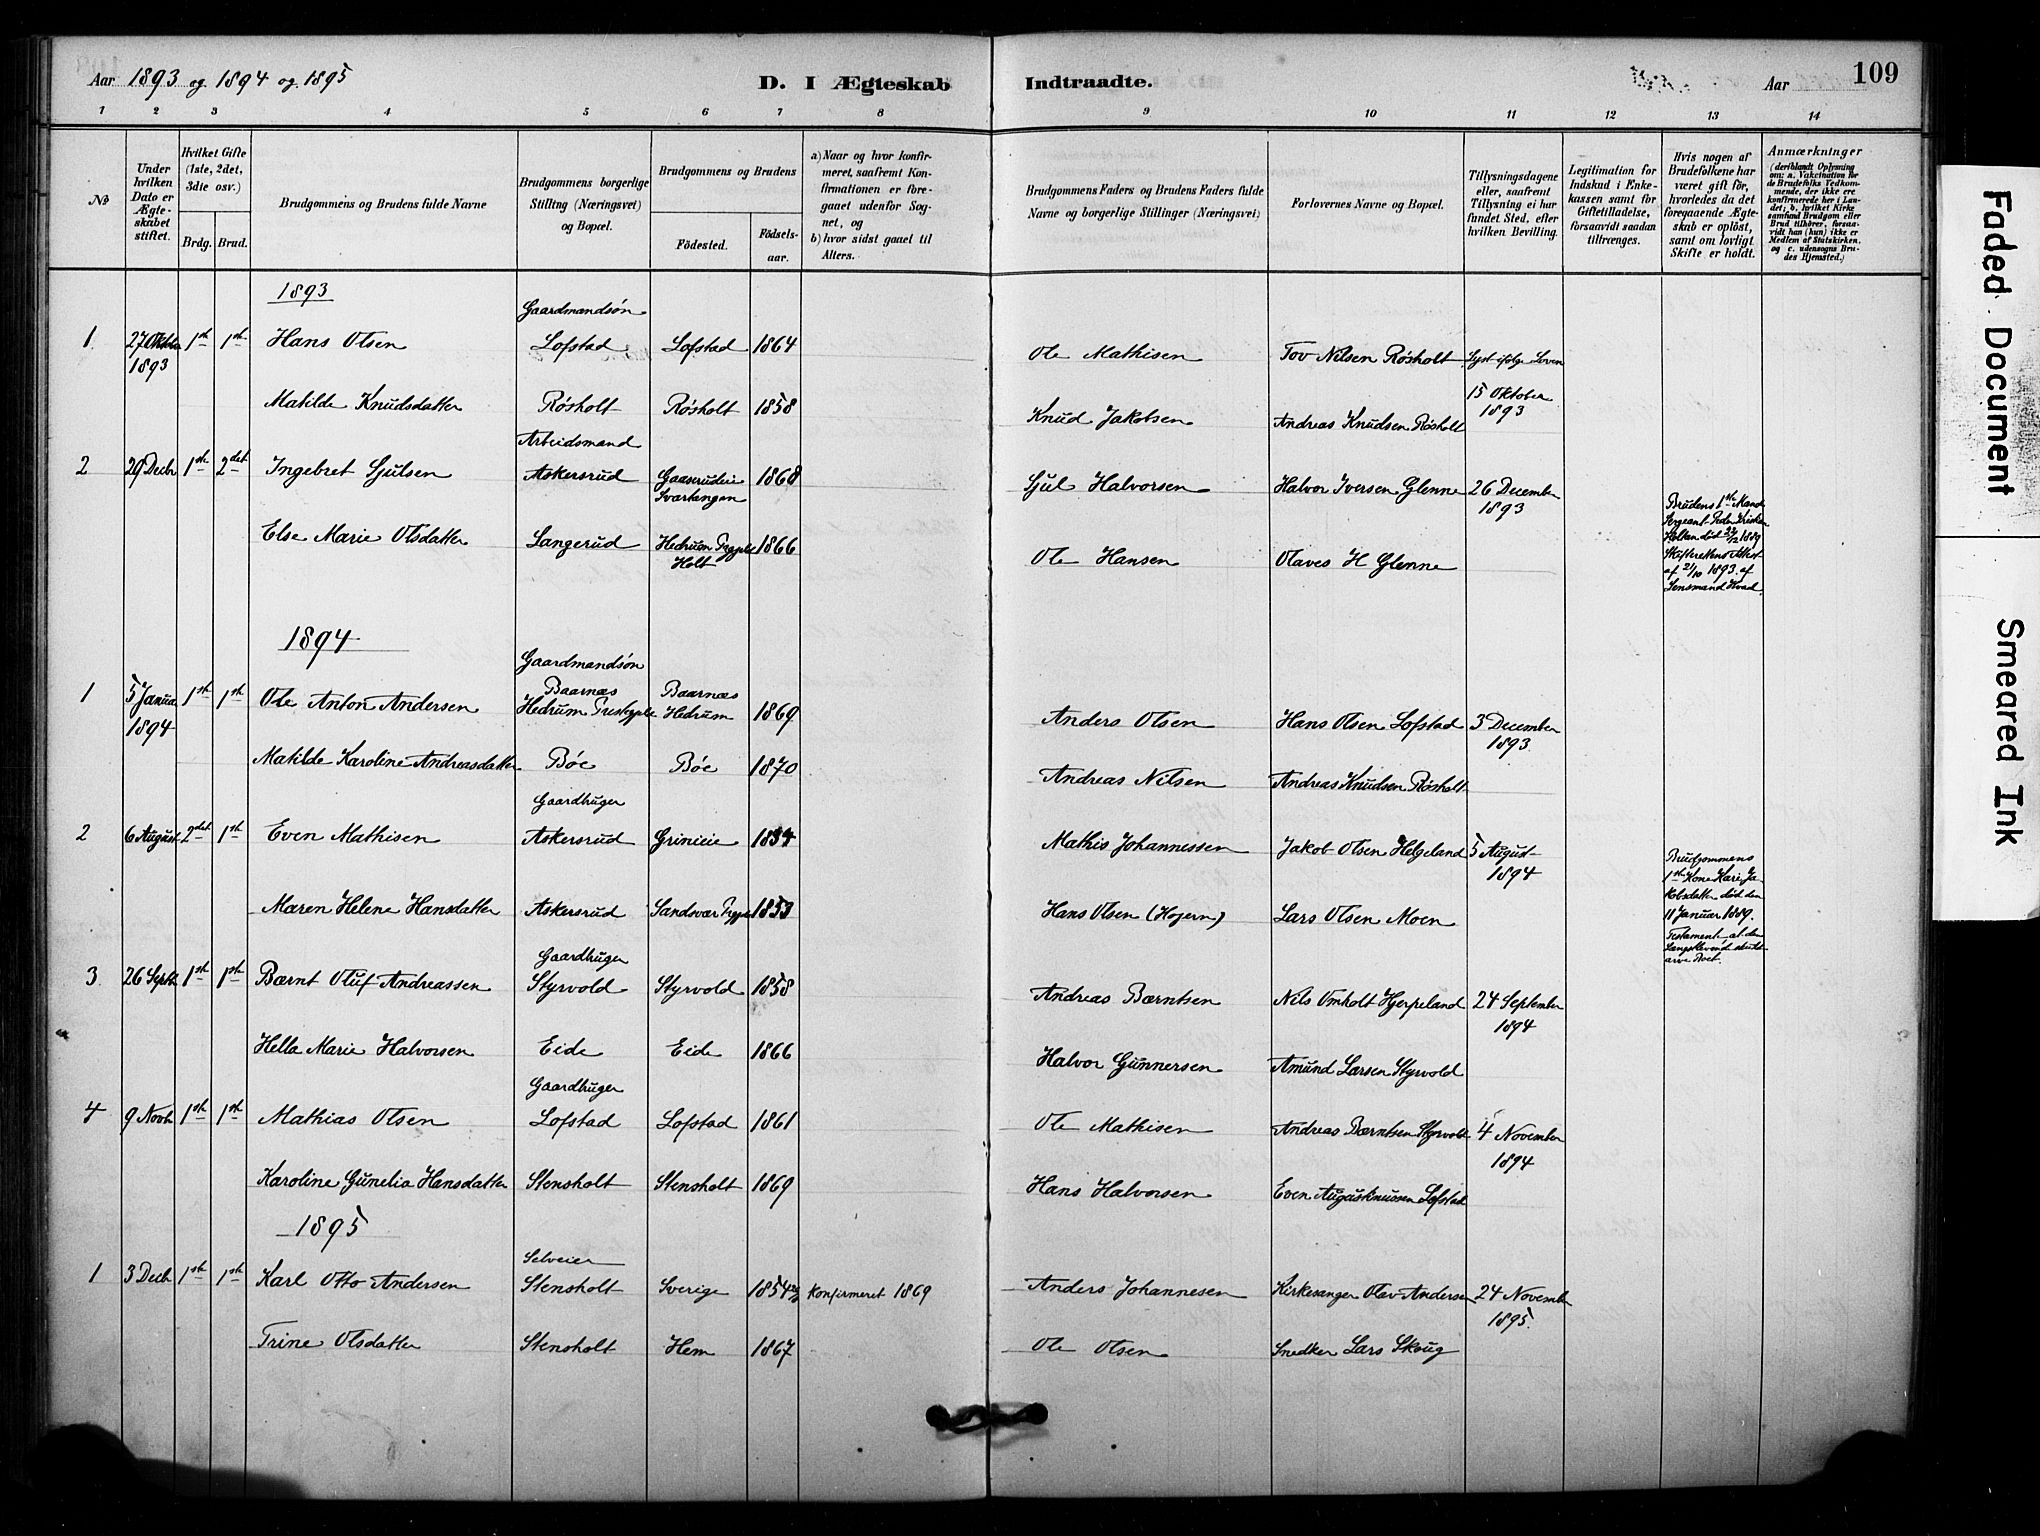 Aar 1893 og 1894 og 1895
D. I Ægteskab Indtraadte.
Aar 109
1 2 3 4 5 6 7 8 9 10 11 12 13 14
No
Under hvilken Dato er Ægteskabet stiftet.
Hvilket Gifte (1ste, 2det, 3die osv.)
Brdg. Brud.
Brudgommens og Brudens fulde Navne
Brudgommens borgerlige Stilling (Næringsvei) og Bopæl.
Brudgommens og Brudens
Födested. Födsels-aar.
a) Naar og hvor konfirmeret, saafremt Konfirmationen er foregaaet udenfor Sognet, og
b) hvor sidst gaaet til Alters.
Brudgommens Faders og Brudens Faders fulde Navne og borgerlige Stillinger (Næringsvei)
Forlovernes Navne og Bopæl.
Tillysningsdagene eller, saafremt Tillysning ei har fundet Sted, efter hvilken Bevilling.
Legitimation for Indskud i Enkekassen samt for Giftetilladelse, forsaavidt saadan tiltrænges.
Hvis nogen af Brudefolkene har været gift för, hvorledes da det foregaaende Ægteskab er oplöst, samt om lovligt Skifte er holdt.
Anmærkninger
(deriblandt Oplysning om: a. Vaccination for de Brudefolks Vedkommende, der ikke ere konfirmerede her i Landet; b. hvilket Kirkesamfund Brudgom eller Brud tilhörer, forsaavidt han (hun) ikke er Medlem af Statskirken. og c. udensogns Brudes Hjemsted.)
1893
Gaardmandsön
1. 27 Oktober 1893 1ste 1ste Hans Olsen Lofstad Lofstad 1864 Ole Mathisen Tov Nilsen Røsholt Lyst ifølge Loven
Matilde Knudsdatter Røsholt Røsholt 1858 Knud Jakobsen Andreas Knudsen Røsholt 15 Oktober 1893
Arbeidsmand
2 29 Decbr 1ste 2det Ingebret Sjulsen Askersrud Svartangen 1868 Sjul Halvorsen Halvor Iversen Glenne 26 December 1893
Brudens 1ste Mand Sergeant Peder død 1889 af 21/10 1893 af Lensmand
Else Marie Olsdatter Langerud Hedrum Holt 1866 Ole Hansen Olaves H Glenne
1894
Gaardmandsön
1 5 Januar 1894 1ste 1ste Ole Anton Andersen Baarnæs Hedrum Baarnæs Hedrum 1869 Anders Olsen Hans Olsen Lofstad 3 December 1893
Matilde Karoline Andreasdatter Bøe Bøe 1870 Andreas Nilsen Andreas Knudsen Røsholt
Gaardbruger
2 6 August 2det 1ste Even Mathisen Askersrud 1834 Mathis Johannessen Jakob Olsen Helgeland 5 August 1894
Brudgommens 1ste Kone Kari Jakobsdatter død den 11 Januar 1889. Testamente, at den Længstlevende skulde arve Boet.
Maren Helene Hansdatter Askersrud Sandsvær 1853 Hans Olsen (Kojern) Lars Olsen Moen
Gaardbruger
3. 26 Septbr 1ste 1ste Bærnt Oluf Andreassen Styrvold Styrvold 1858 Andreas Bærntsen Nils Omholt Hjerpeland 24 September 1894
Hella Marie Halvorsen Eide Eide 1866 Halvor Gunnersen Amund Larsen Styrvold
Gaardbruger
4 9 Novbr 1ste 1ste Mathias Olsen Lofstad Lofstad 1861 Ole Mathisen Andreas Bærntsen Styrvold 4 November 1894
Karoline Gunelia Hansdatter Stensholt Stensholt 1869 Hans Halvorsen Even Lofstad
1895
Selveier
1 3 Decbr 1ste 1ste Karl Otto Andersen Stensholt Sverige 1854 Konfirmeret 1869 Anders Johannesen Kirkesanger Olav Andersen 24 November 1895.
Trine Olsdatter Stensholt Hem 1867 Ole Olsen Snedker Lars Skoug
Faded Document
Smeared Ink